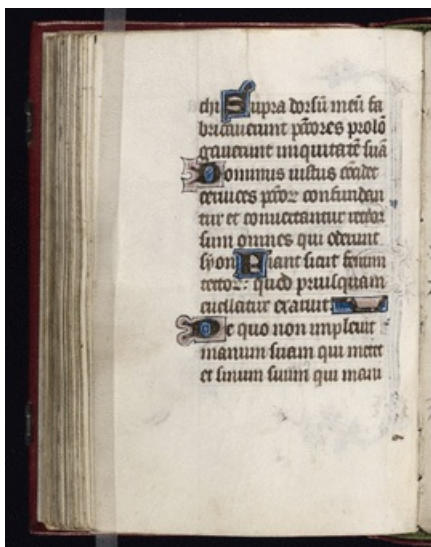 chi Supra dorsū meū fa
bricauerunt pc̄cores prolō
gauerunt iniquitatē suā
Dominus iustus cōcidet
ceruices pc̄cor confundan
tur et conuertantur retror
sum omnes qui oderunt
syon Fiant sicut fenum
tector: quod priusquam
euellatur exaruit
De quo non impleuit
manum suam qui metet
et sinum suum qui mani